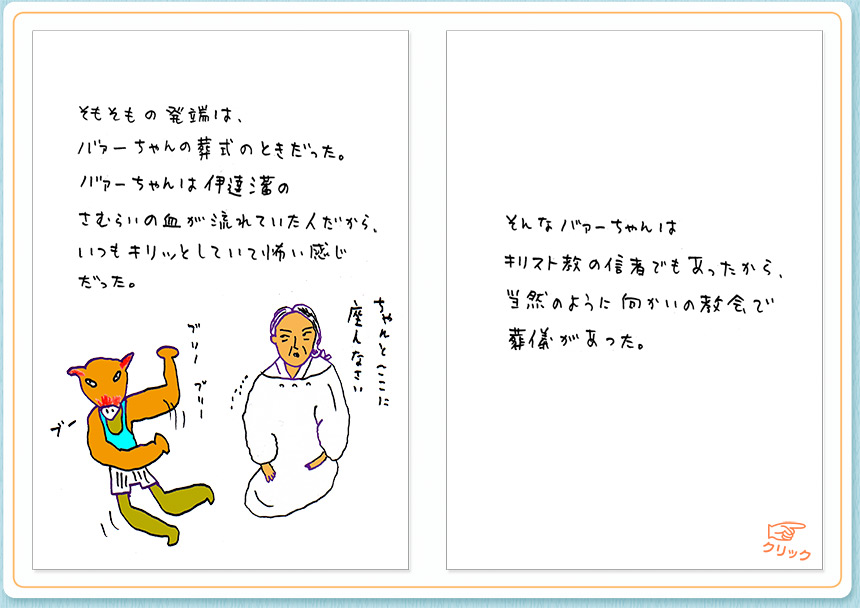 そもそもの発端は、
バァーちゃんの葬式のときだった。
バァーちゃんは伊達藩の
さむらいの血が流れていた人だから、
いつもキリッとしていて怖い感じ
だった。
ちゃんとここに
座んなさい
ブリー ブリー
ブー
そんなバァーちゃんは
キリスト教の信者でもあったから、
当然のように向かいの教会で
葬儀があった。
クリック